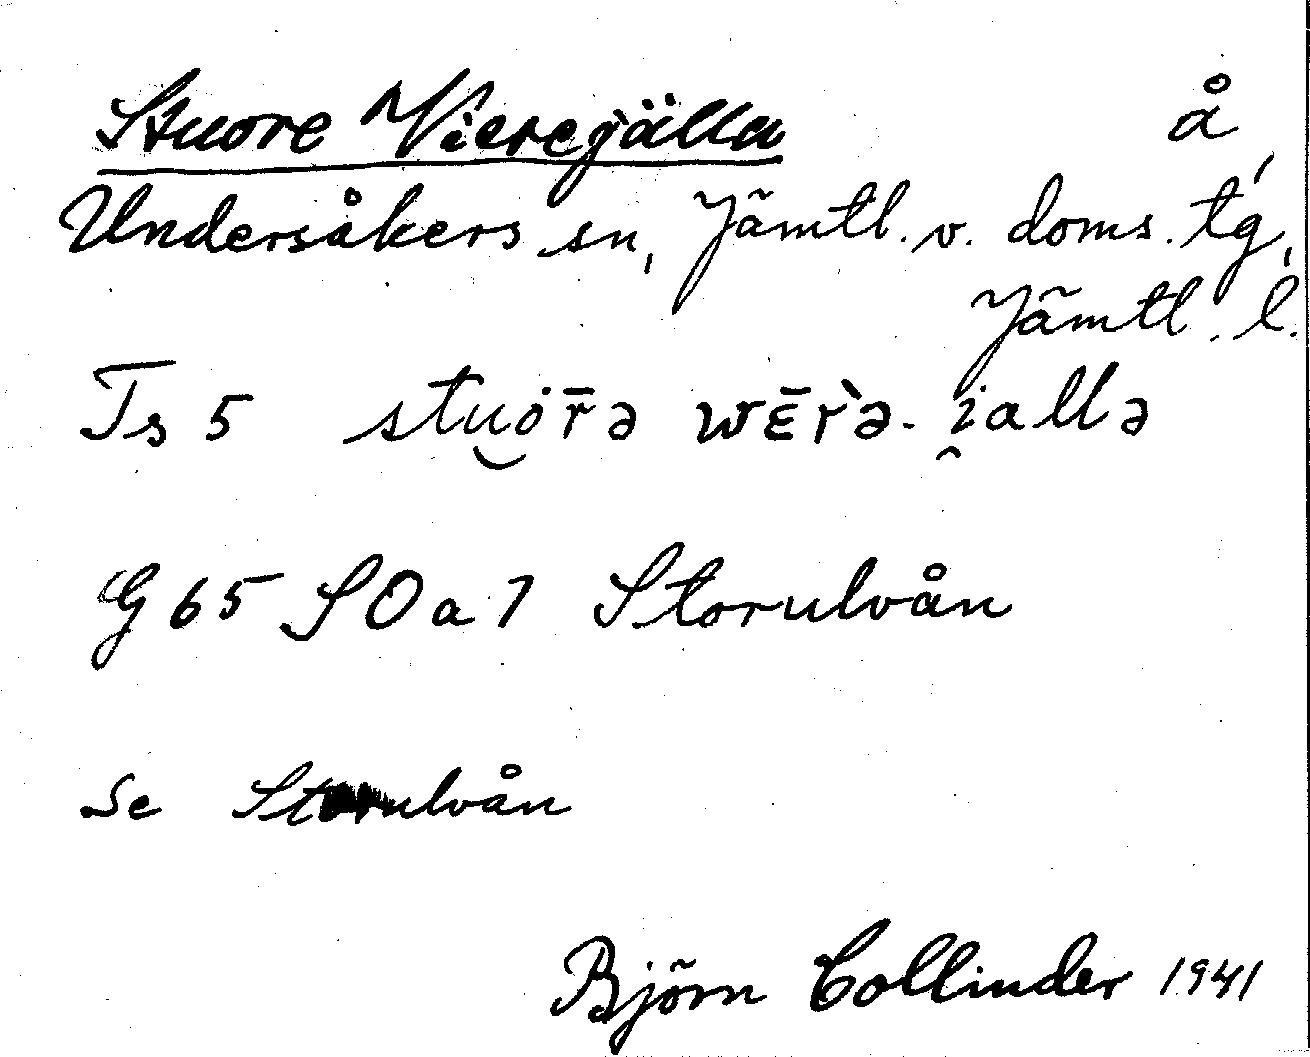 Stuore Vieregjälla å
Undersåkers sn, Jämtl. v. doms. tg,
Jämtl. l.
Ts 5 stu̯ȯr̄ə wɛ̄r̀ə-i̯allə
G 65 SO a 7 Storulvån
Se Storulvån
Björn Collinder 1941